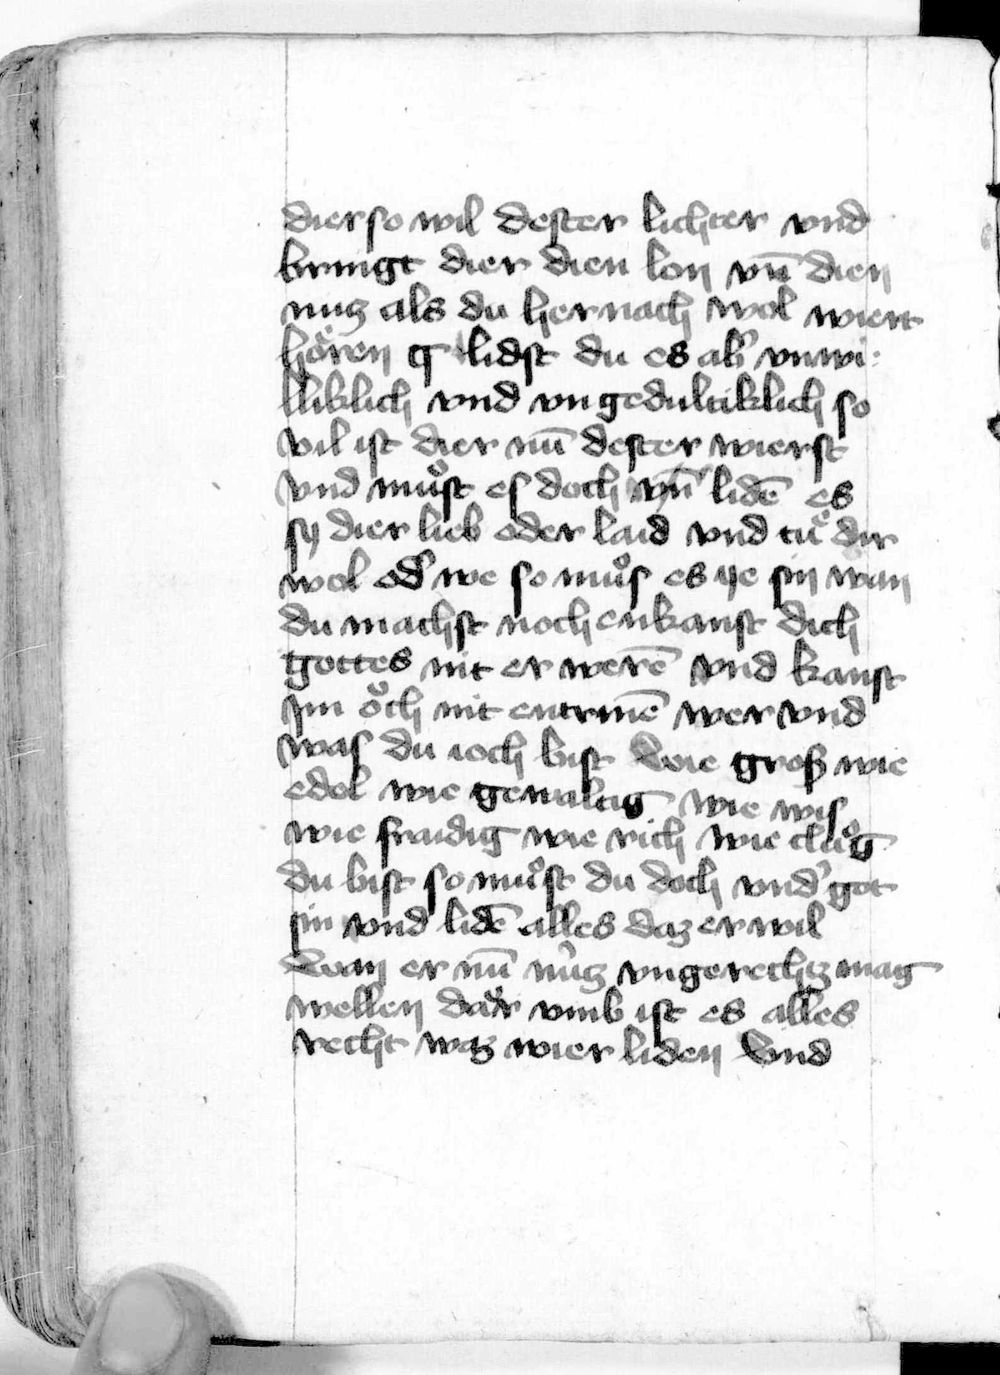 dier so wil dester lichter vnd
bringt dier dien lon vn̄ dien
nutz als du her nach wol wiert
hoͤren ¶ lidst du es ab̕ vnwi⸗
lliklich vnd vngedultiklich so
vil ist dier nū dester wierst
vnd muͦst es doch vn̄ lidē es
sy dier lieb oder laid vnd tuͤ dir
wol od̕ we so muͦs es ye sin wan
du machst noch enkanst dich
gottes nit er werē vnd kanst
im oͮch nit entrinē wer vnd
was du ioch bist Wie groß wie
edel wie gewaltig wie wis
wie fraidig wie rich wie cluͦg
du bist so muͦst du doch vnd̕ got
sin vnd lidē alles daz er wil
Wan er nū nütz vngerechtz mag
wellen dar vmb ist es alles
recht waz wier liden Vnd